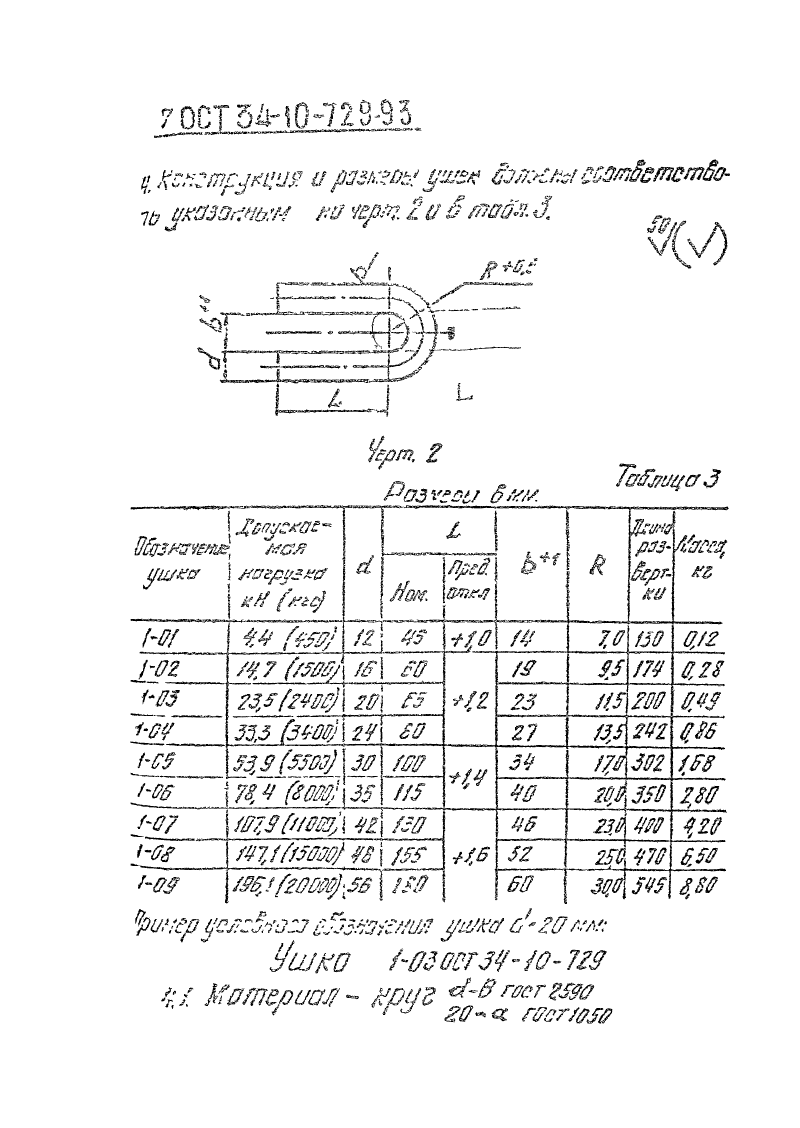 7 ОСТ 34-10-729-93
4. Конструкция и размеры ушек должны соответство-
ть указанным на черт. 2 и в табл. 3.
50 (√)
d
R+0,5
b+1
d
L
L
Черт. 2
Таблица 3
Размеры в мм.
Обозначение ушка | Допускае-мая нагрузка кН (кгс) | d | L Ном. | L Пред. откл | b+1 | R | Длина раз-верт-ки | Масса, кг
1-01 | 4,4 (450) | 12 | 45 | ±1,0 | 14 | 7,0 | 130 | 0,12
1-02 | 14,7 (1500) | 16 | 60 | 19 | 9,5 | 174 | 0,28
1-03 | 23,5 (2400) | 20 | 65 | ±1,2 | 23 | 11,5 | 200 | 0,49
1-04 | 33,3 (3400) | 24 | 80 | 27 | 13,5 | 242 | 0,86
1-05 | 53,9 (5500) | 30 | 100 | ±1,4 | 34 | 17,0 | 302 | 1,68
1-06 | 78,4 (8000) | 36 | 115 | 40 | 20,0 | 350 | 2,80
1-07 | 107,9 (11000) | 42 | 130 | 46 | 23,0 | 400 | 4,20
1-08 | 147,1 (15000) | 48 | 155 | ±1,6 | 52 | 25,0 | 470 | 6,50
1-09 | 196,1 (20000) | 56 | 180 | 60 | 30,0 | 545 | 8,80
Пример условного обозначения ушка d=20 мм:
Ушко 1-03 ОСТ 34-10-729
4.1. Материал - круг d-В ГОСТ 2590
20-а ГОСТ 1050